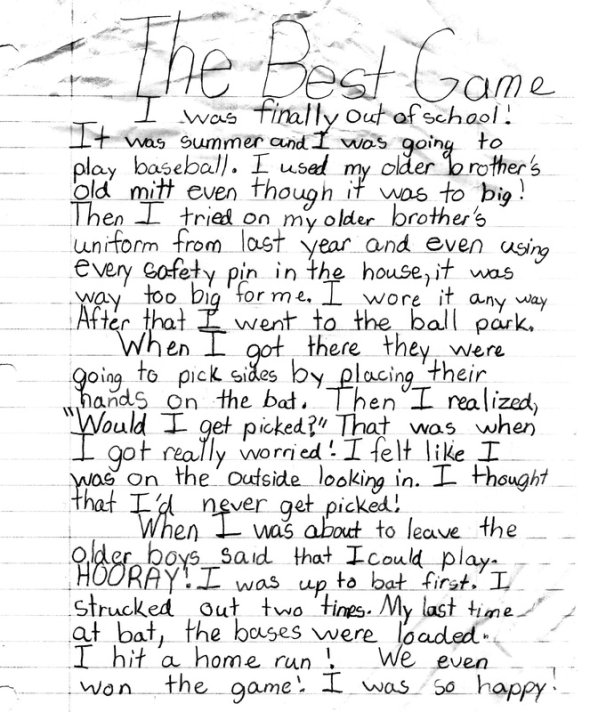 The Best Game
I was finally out of school!
It was summer and I was going to
play baseball. I used my older brother's
old mitt even though it was to big!
Then I tried on my older brother's
uniform from last year and even using
every safety pin in the house, it was
way too big for me. I wore it any way
After that I went to the ball park.
When I got there they were
going to pick sides by placing their
hands on the bat. Then I realized,
"Would I get picked?" That was when
I got really worried! I felt like I
was on the outside looking in. I thought
that I'd never get picked!
When I was about to leave the
older boys said that I could play.
HOORAY! I was up to bat first. I
strucked out two times. My last time
at bat, the bases were loaded.
I hit a home run! We even
won the game! I was so happy!